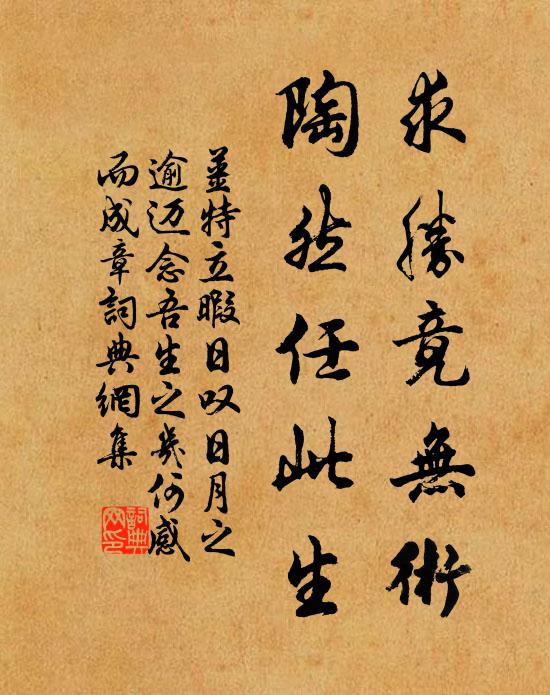 求勝竟無術
陶然任此生
姜特立暇日叹日月之
逾迈念吾生之幾何感
而成章詞典網集
詞典